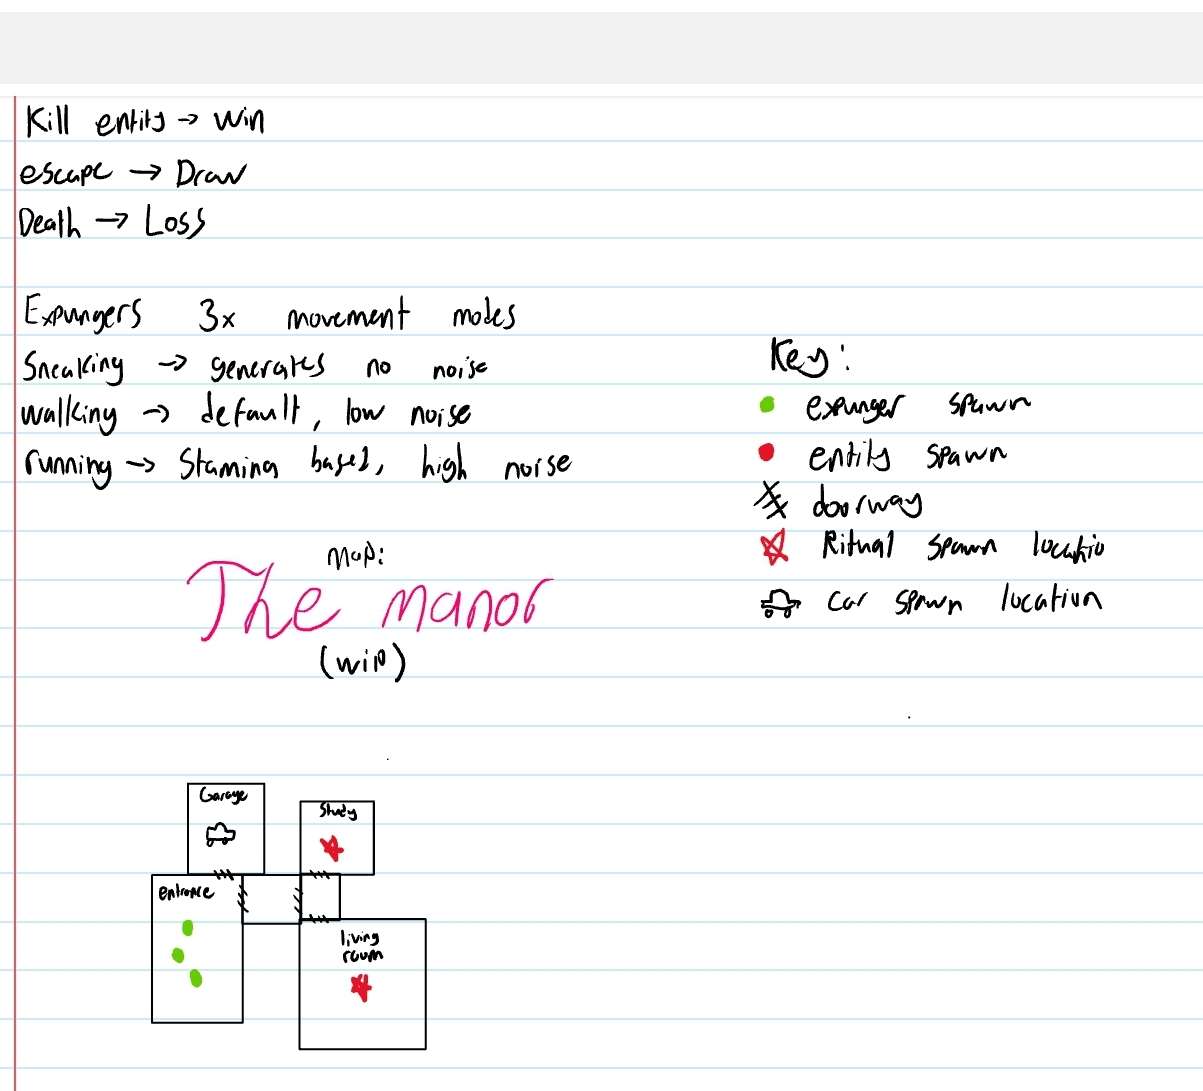 Kill entity → win
escape → Draw
Death → Loss
Expungers 3x movement modes
Sneaking → generates no noise
walking → default, low noise
running → Stamina based, high noise
Key:
expunger spawn
entity spawn
doorway
Ritual spawn locatio
car spawn location
Map:
The manor
(wip)
Garage
Study
entrance
living
room